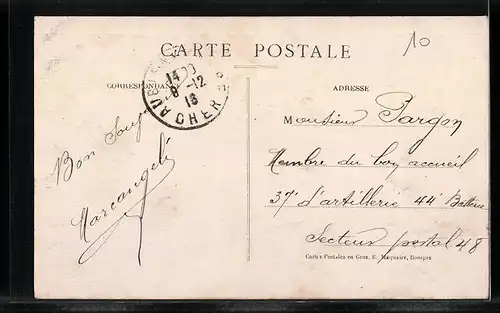 CARTE POSTALE
10
CORRESPONDANCE
ADRESSE
14
8-12
16
CHER
Monsieur Pargon
Bon Soup
Membre du boy accueil
37e d'artillerie 44e Batterie
Marcangeli
Secteur postal 48
Cartes Postales en Gros, E. Maquaire, Bourges